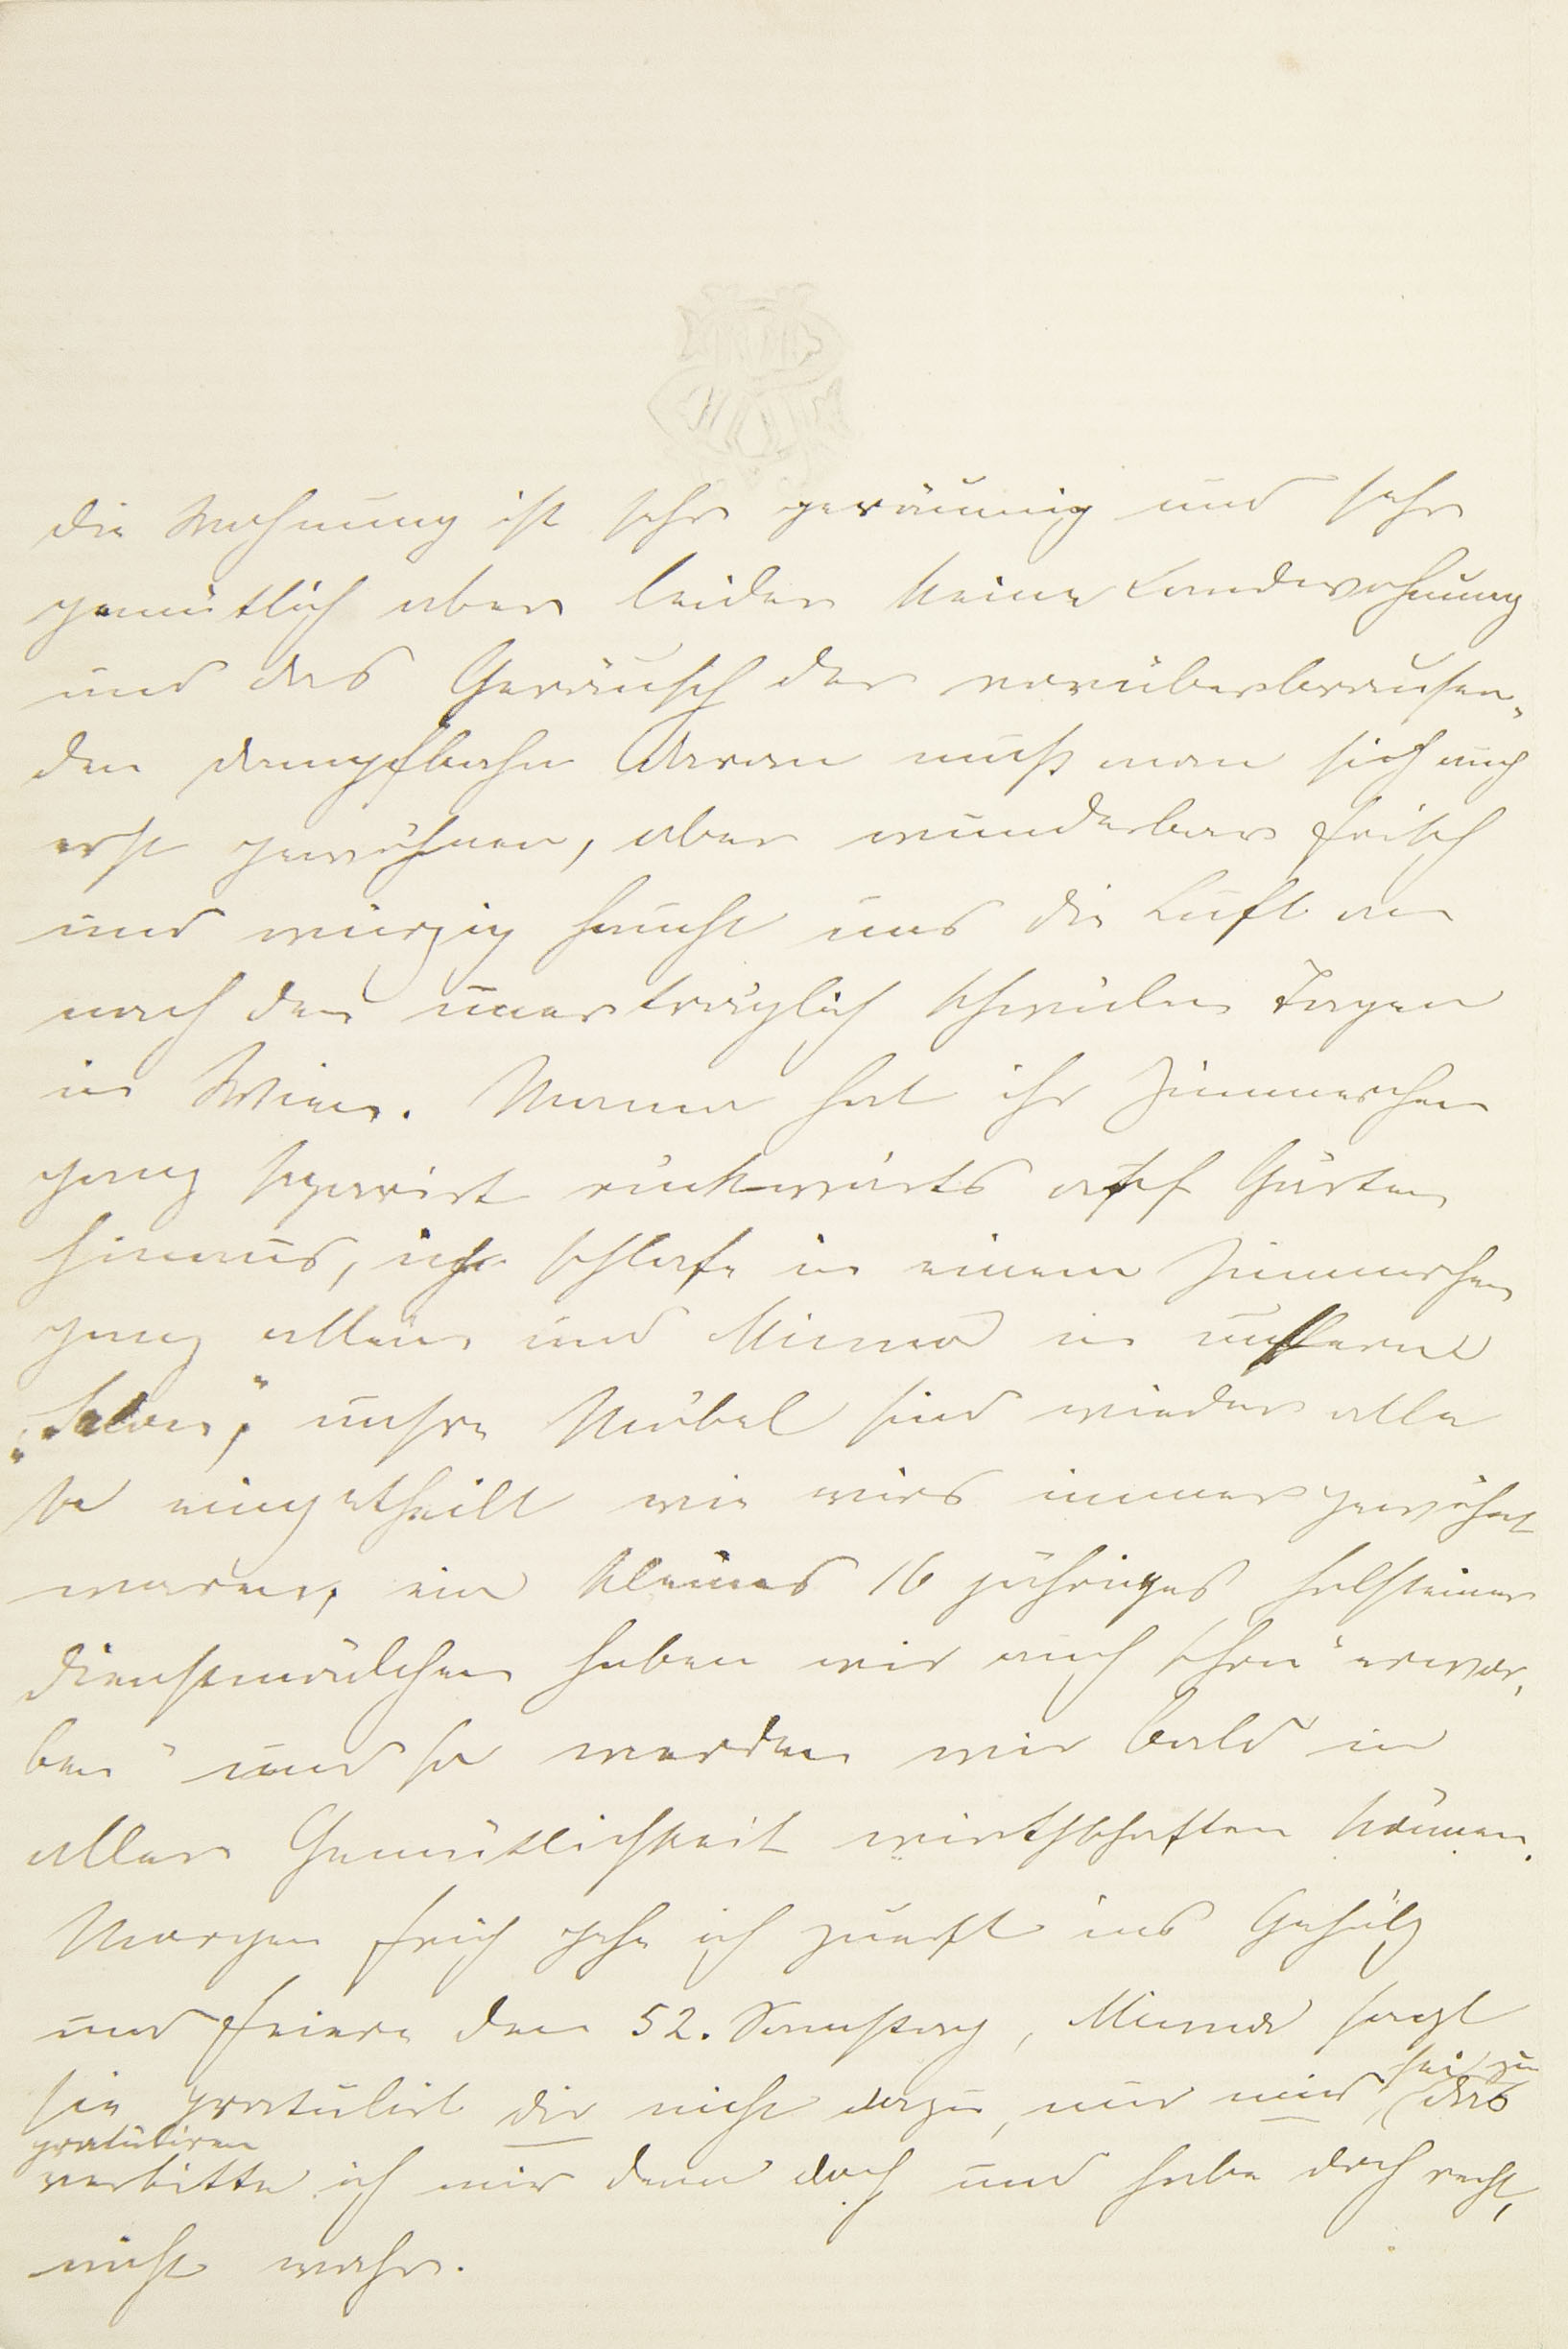 die Wohnung ist sehr geräumig und sehr
gemütlich aber leider keine Landwohnung
und das Geräusch der vorüberbrausen-
den Dampfbahn daran muß man sich auch
erst gewöhnen, aber wunderbar frisch
und würzig haucht uns die Luft an
nach den unerträglich schwülen Tagen
in Wien. Mama hat ihr Zimmerchen
ganz separirt rückwärts auf Gärten
hinaus, ich schlafe in einem Zimmerchen
ganz allein und Minna in unserem
„Salon", unsre Möbel sind wieder alle
so eingetheilt wie wirs immer gewöhnt
waren, ein kleines 16 jähriges holsteiner
Dienstmädchen haben wir auch schon „erwor-
ben" und so werden wir bald in
aller Gemütlichkeit wirthschaften können.
Morgen früh gehe ich zuerst ins Gehölz
und feiere den 52. Samstag, Minna sagt
sie gratulirt dir nicht dazu, nur mir sei zu
gratuliren (das
verbitte ich mir denn doch und habe doch recht,
nicht wahr.